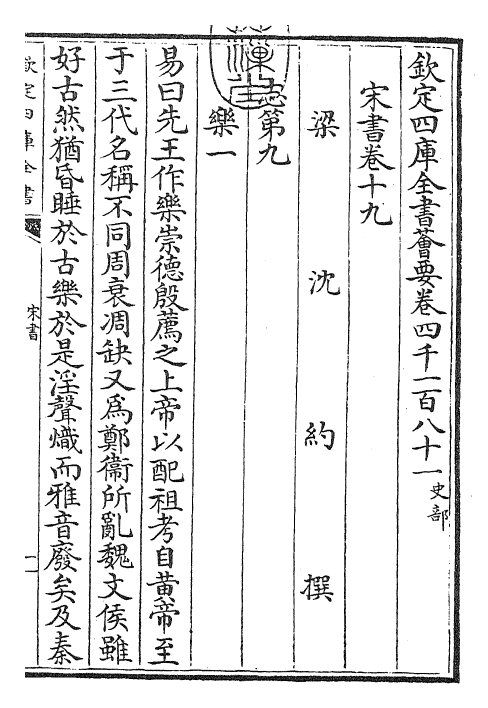 欽定四庫全書薈要卷四千一百八十一史部
宋書卷十九
梁沈約撰
志第九
樂一
易曰先王作樂崇德殷薦之上帝以配祖考自黃帝至
于三代名稱不同周衰凋缺又為鄭衞所亂魏文侯雖
好古然猶昏睡於古樂於是淫聲熾而雅音廢矣及秦
欽定四庫全書
宋書
一